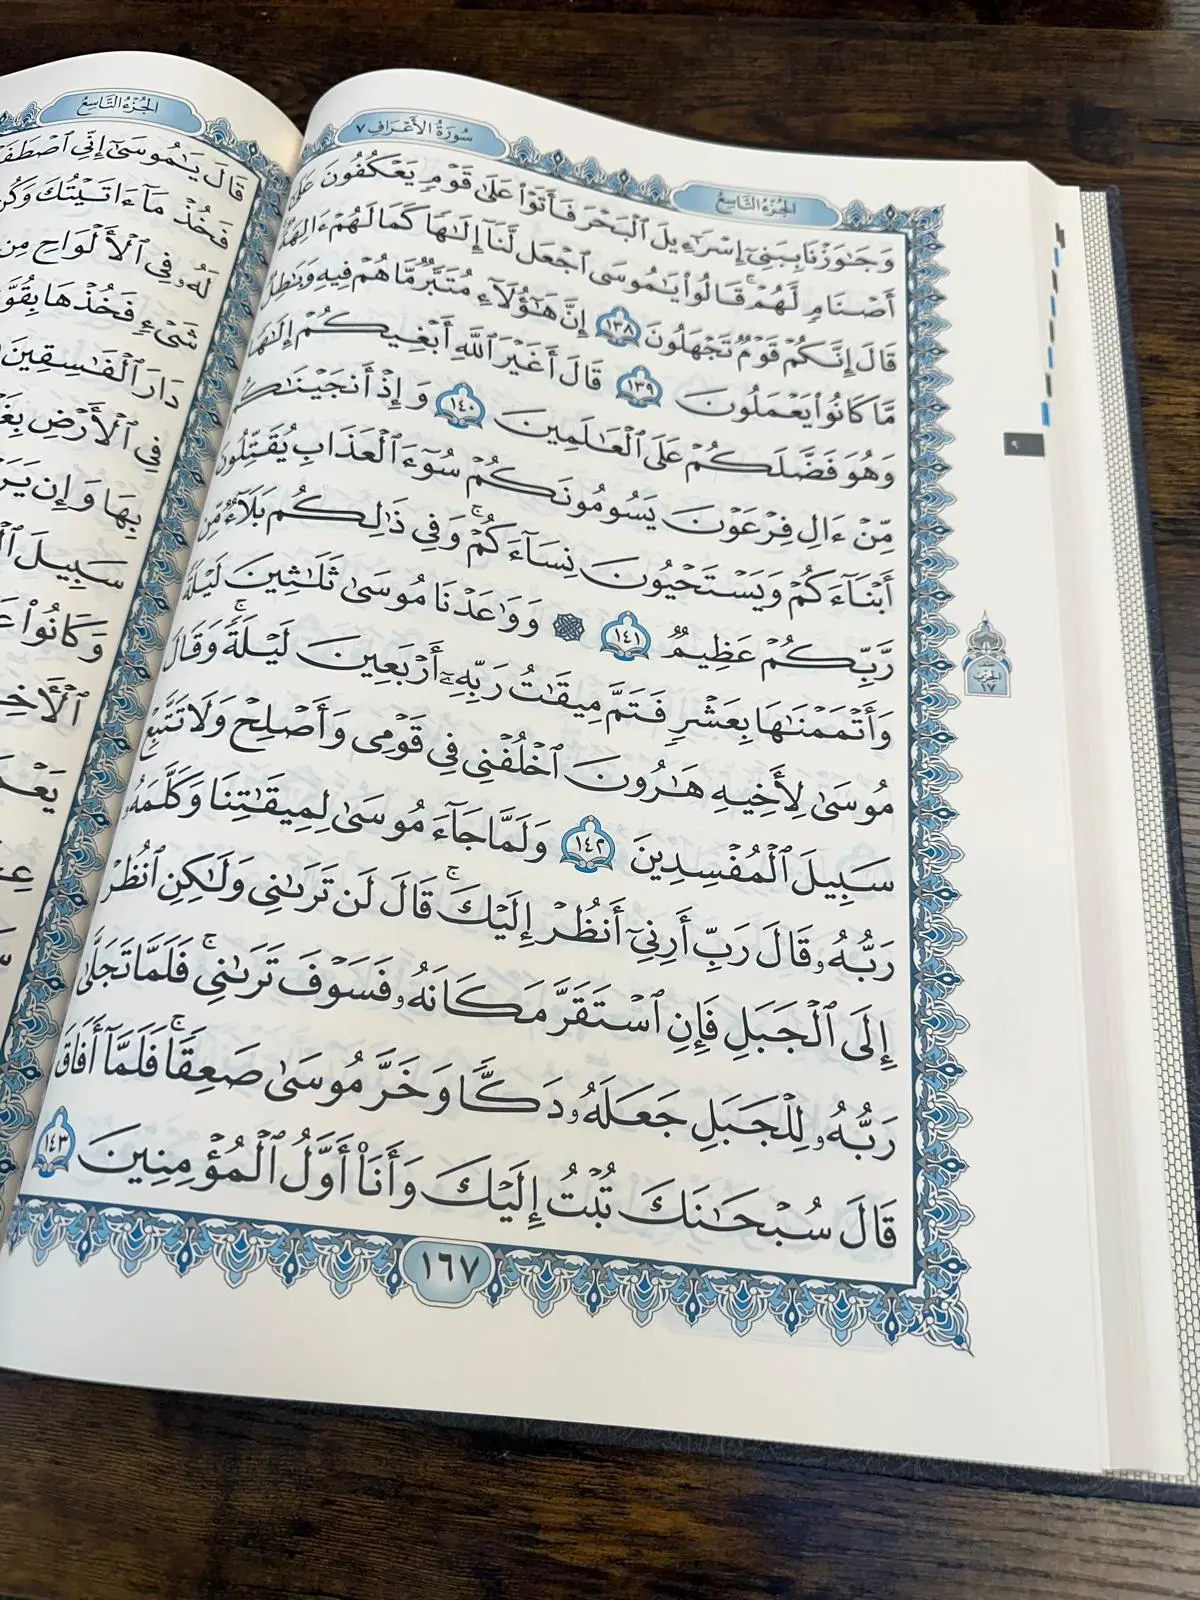 الجُزْءُ التَّاسِعُ
سُورَةُ الأَعْرَافِ ٧
وَجَٰوَزْنَا بِبَنِىٓ إِسْرَٰٓءِيلَ ٱلْبَحْرَ فَأَتَوْا۟ عَلَىٰ قَوْمٍ يَعْكُفُونَ عَلَىٰٓ
أَصْنَامٍ لَّهُمْ ۚ قَالُوا۟ يَٰمُوسَى ٱجْعَل لَّنَآ إِلَٰهًا كَمَا لَهُمْ ءَالِهَةٌ ۚ
قَالَ إِنَّكُمْ قَوْمٌ تَجْهَلُونَ ١٣٨ إِنَّ هَٰٓؤُلَآءِ مُتَبَّرٌ مَّا هُمْ فِيهِ وَبَٰطِلٌ
مَّا كَانُوا۟ يَعْمَلُونَ ١٣٩ قَالَ أَغَيْرَ ٱللَّهِ أَبْغِيكُمْ إِلَٰهًا
وَهُوَ فَضَّلَكُمْ عَلَى ٱلْعَٰلَمِينَ ١٤٠ وَإِذْ أَنجَيْنَٰكُم
مِّنْ ءَالِ فِرْعَوْنَ يَسُومُونَكُمْ سُوٓءَ ٱلْعَذَابِ يُقَتِّلُونَ
أَبْنَآءَكُمْ وَيَسْتَحْيُونَ نِسَآءَكُمْ ۚ وَفِى ذَٰلِكُم بَلَآءٌ مِّن
رَّبِّكُمْ عَظِيمٌ ١٤١ ۞ وَوَٰعَدْنَا مُوسَىٰ ثَلَٰثِينَ لَيْلَةً
وَأَتْمَمْنَٰهَا بِعَشْرٍ فَتَمَّ مِيقَٰتُ رَبِّهِۦٓ أَرْبَعِينَ لَيْلَةً ۚ وَقَالَ
مُوسَىٰ لِأَخِيهِ هَٰرُونَ ٱخْلُفْنِى فِى قَوْمِى وَأَصْلِحْ وَلَا تَتَّبِعْ
سَبِيلَ ٱلْمُفْسِدِينَ ١٤٢ وَلَمَّا جَآءَ مُوسَىٰ لِمِيقَٰتِنَا وَكَلَّمَهُۥ
رَبُّهُۥ قَالَ رَبِّ أَرِنِىٓ أَنظُرْ إِلَيْكَ ۚ قَالَ لَن تَرَىٰنِى وَلَٰكِنِ ٱنظُرْ
إِلَى ٱلْجَبَلِ فَإِنِ ٱسْتَقَرَّ مَكَانَهُۥ فَسَوْفَ تَرَىٰنِى ۚ فَلَمَّا تَجَلَّىٰ
رَبُّهُۥ لِلْجَبَلِ جَعَلَهُۥ دَكًّا وَخَرَّ مُوسَىٰ صَعِقًا ۚ فَلَمَّآ أَفَاقَ
قَالَ سُبْحَٰنَكَ تُبْتُ إِلَيْكَ وَأَنَا۠ أَوَّلُ ٱلْمُؤْمِنِينَ ١٤٣
١٦٧
الحِزْب
١٧
٩
الجُزْءُ التَّاسِعُ
قَالَ يَٰمُوسَىٰٓ إِنِّى
فَخُذْ مَآ ءَاتَيْتُكَ
لَهُۥ فِى ٱلْأَلْوَاحِ مِن
شَىْءٍ فَخُذْهَا
دَارَ ٱلْفَٰسِقِينَ
فِى ٱلْأَرْضِ
بِهَا وَإِن
سَبِيلَ
وَكَانُوا۟